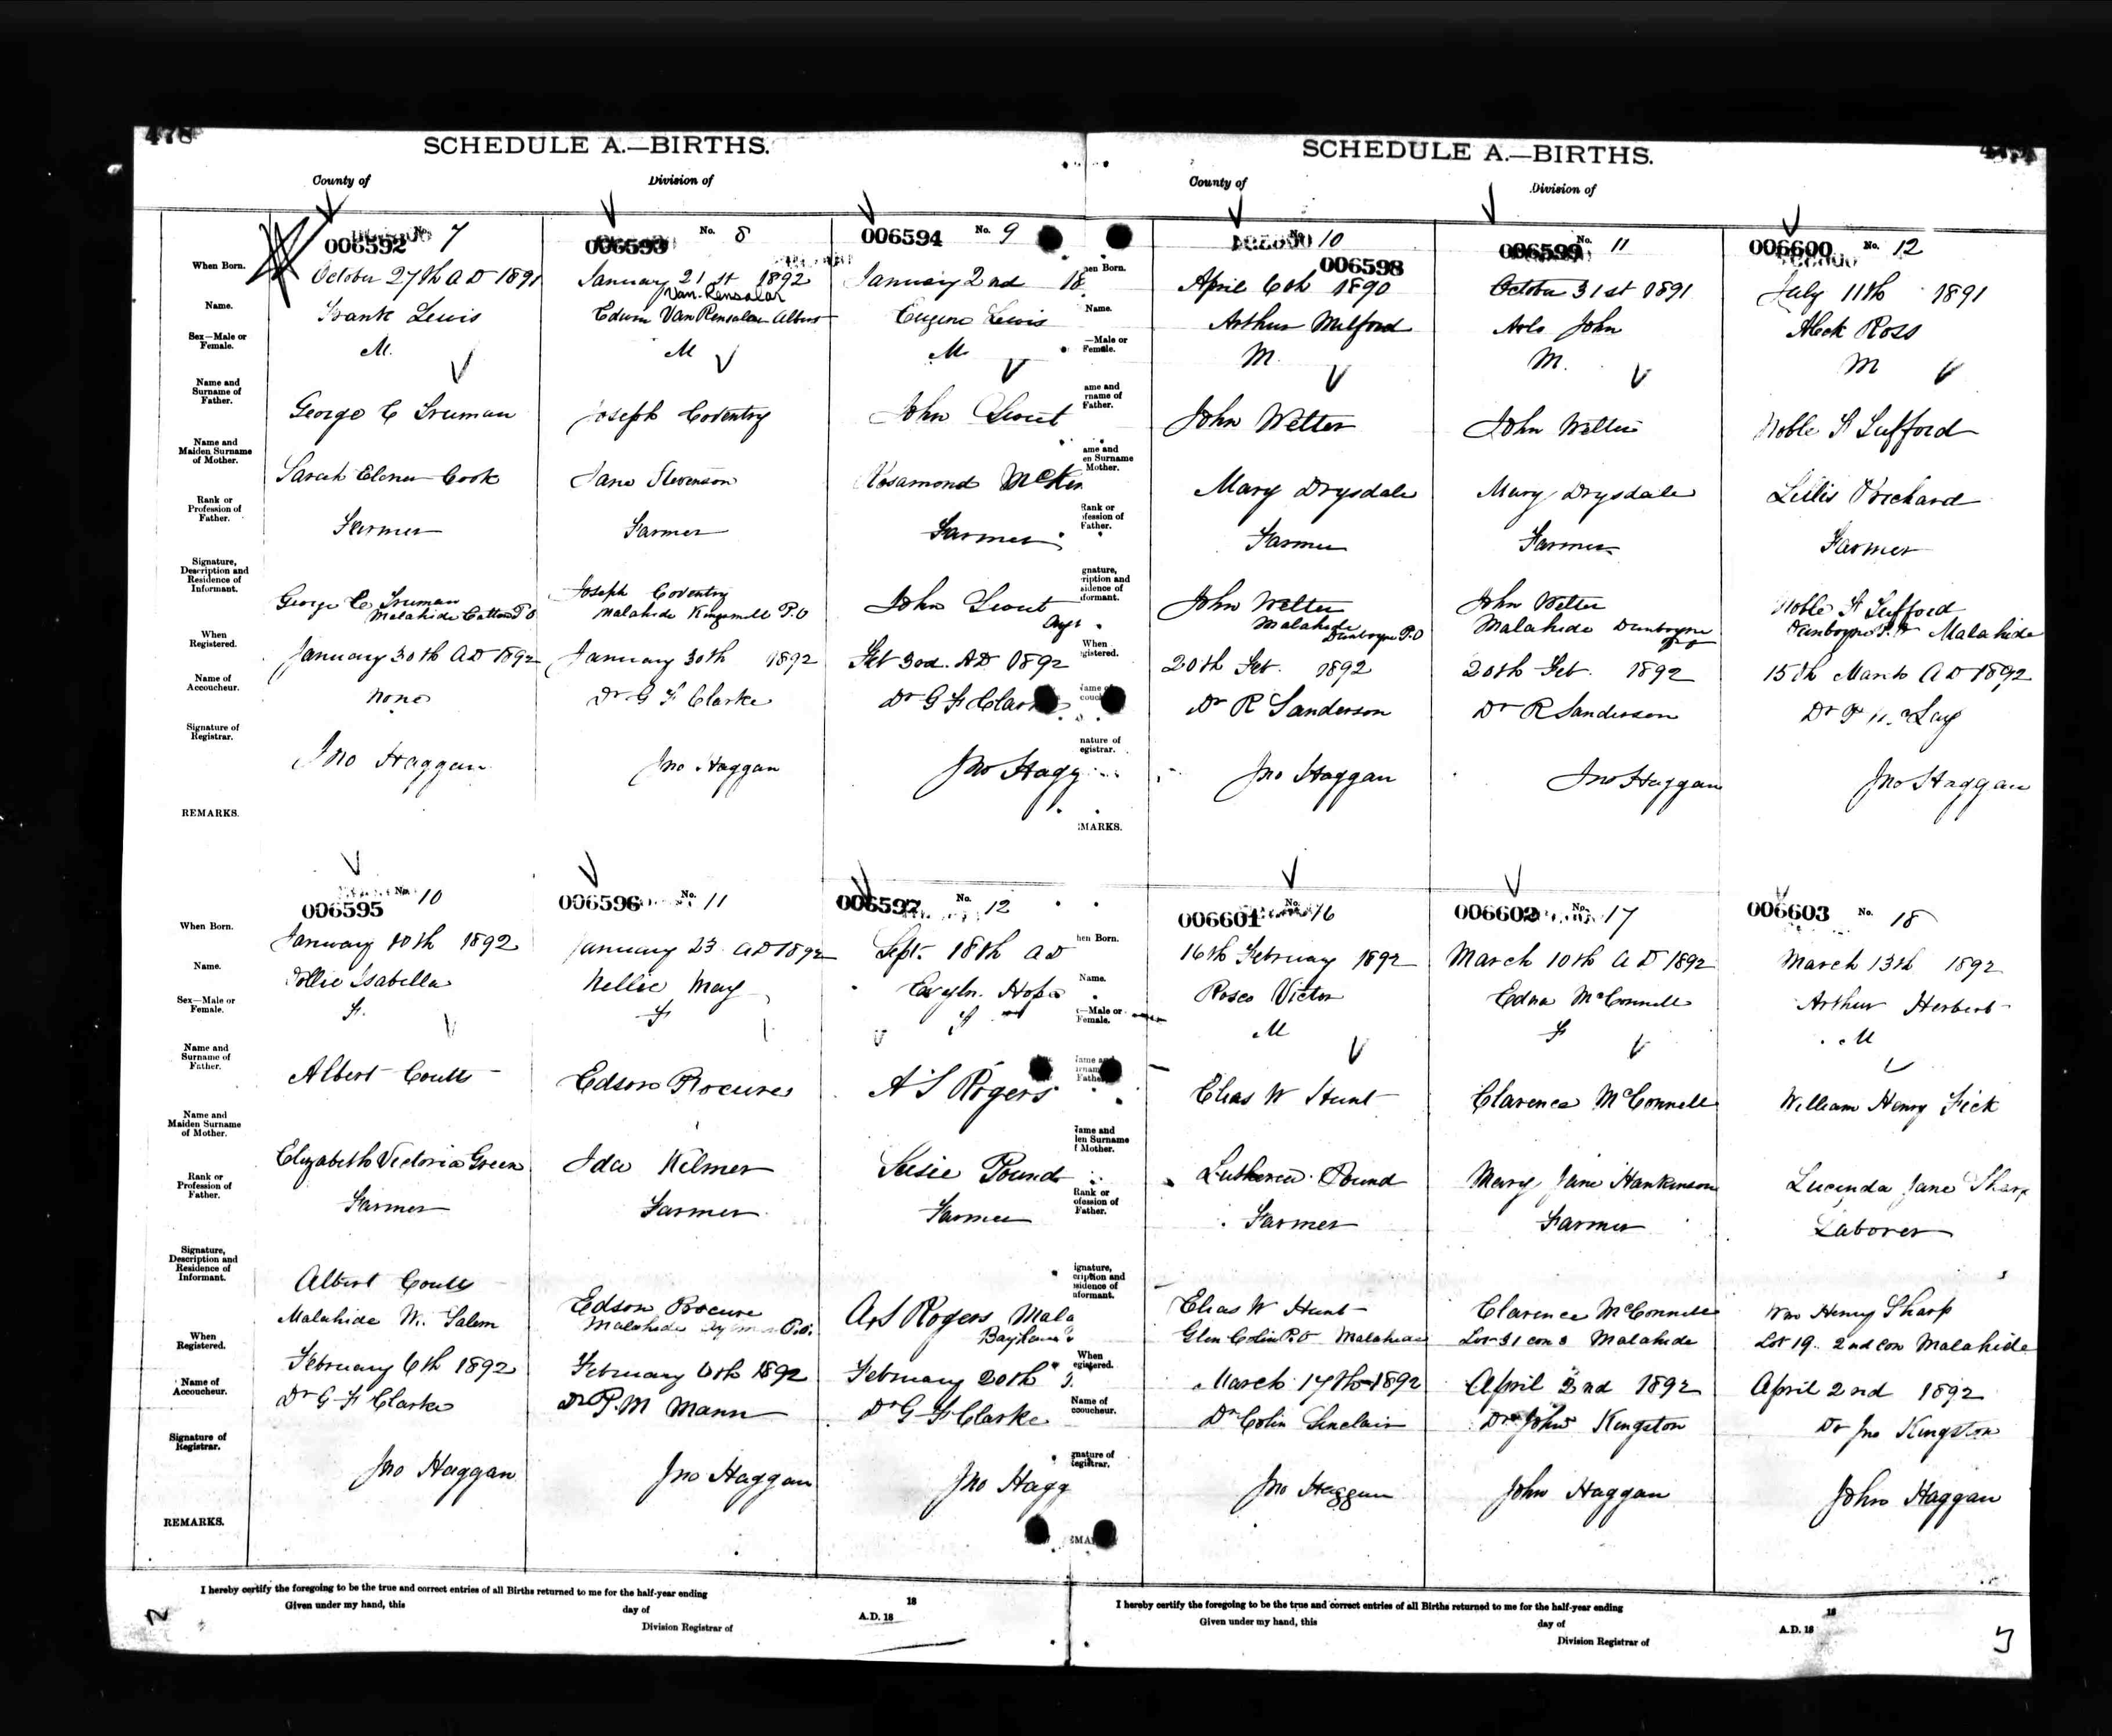 478
SCHEDULE A.—BIRTHS.
County of
Division of
006592 No. 7
006593 No. 8
006594 No. 9
When Born.
October 27th AD 1891
January 21st 1892
January 2nd 18
Name.
Frank Lewis
Van Rensalar
Edwin Van Rensalar Albert
Eugene Lewis
Sex—Male or Female.
M.
M
M
Name and Surname of Father.
George C Truman
Joseph Coventry
John
Name and Maiden Surname of Mother.
Sarah Elenor Cook
Jane Stevenson
Rosamond McKen
Rank or Profession of Father.
Farmer
Farmer
Farmer
Signature, Description and Residence of Informant.
George C Truman
Malahide P.O
Joseph Coventry
Malahide Kingsmill P.O
John
When Registered.
January 30th AD 1892
January 30th 1892
Feb 3rd. AD 1892
Name of Accoucheur.
none
Dr G F Clarke
Dr G F Clar
Signature of Registrar.
Jno Haggan
Jno Haggan
Jno Hagg
REMARKS.
006595 No. 10
006596 No. 11
006597 No. 12
When Born.
January 10th 1892
January 23 AD 1892
Sept. 18th AD
Name.
Ollie Isabella
Nellie May
Evelyn Hope
Sex—Male or Female.
F.
F
F
Name and Surname of Father.
Albert Coutts
Edson Procure
A S Rogers
Name and Maiden Surname of Mother.
Elizabeth Victoria Green
Ida Kilmer
Susie Pound
Rank or Profession of Father.
Farmer
Farmer
Farmer
Signature, Description and Residence of Informant.
Albert Coutts
Malahide N. Salem
Edson Procure
Malahide Aylmer P.O.
A S Rogers Mala
Bayham
When Registered.
February 6th 1892
February 6th 1892
February 20th
Name of Accoucheur.
Dr G F Clarke
Dr P. M Mann
Dr G F Clarke
Signature of Registrar.
Jno Haggan
Jno Haggan
Jno Hagg
REMARKS.
I hereby certify the foregoing to be the true and correct entries of all Births returned to me for the half-year ending 18
Given under my hand, this day of A.D. 18
Division Registrar of
2
SCHEDULE A.—BIRTHS.
County of
Division of
No. 10
006598
006599 No. 11
006600 No. 12
hen Born.
April 6th 1890
October 31st 1891
July 11th 1891
Name.
Arthur Milford
Arlo John
Aleck Ross
—Male or Female.
M.
M.
M
ame and rname of Father.
John Welter
John Welter
Noble F Lufford
ame and en Surname Mother.
Mary Drysdale
Mary Drysdale
Lillis Prichard
Rank or ofession of Father.
Farmer
Farmer
Farmer
gnature, ription and sidence of formant.
John Welter
Malahide
Dunboyne P.O
John Welter
Malahide Dunboyne
PO
Noble F Lufford
Dunboyne P.O Malahide
When egistered.
20th Feb. 1892
20th Feb. 1892
15th March AD 1892
Dr R Sanderson
Dr R Sanderson
Dr
nature of egistrar.
Jno Haggan
Jno Haggan
Jno Haggan
MARKS.
006601 No. 16
006602 No. 17
006603 No. 18
hen Born.
16th February 1892
March 10th AD 1892
March 13th 1892
Name.
Rosco Victor
Edna McConnell
Arthur Herbert
—Male or Female.
M
F
M
Elias W Hunt
Clarence McConnell
William Henry Fick
ame and len Surname f Mother.
Pound
Mary Jane Hankinson
Lucinda Jane Sharp
Rank or ofession of Father.
Farmer
Farmer
Laborer
ignature, cription and sidence of nformant.
Elias W Hunt
Glen Colin P.O Malahide
Clarence McConnell
Lot 31 con 3 Malahide
Wm Henry Sharp
Lot 19. 2nd con Malahide
When egistered.
March 17th 1892
April 2nd 1892
April 2nd 1892
Name of ccoucheur.
Dr Colin Sinclair
Dr John Kingston
Dr Jno Kingston
gnature of Registrar.
Jno Haggan
John Haggan
John Haggan
I hereby certify the foregoing to be the true and correct entries of all Births returned to me for the half-year ending 18
Given under my hand, this day of A.D. 18
Division Registrar of
3